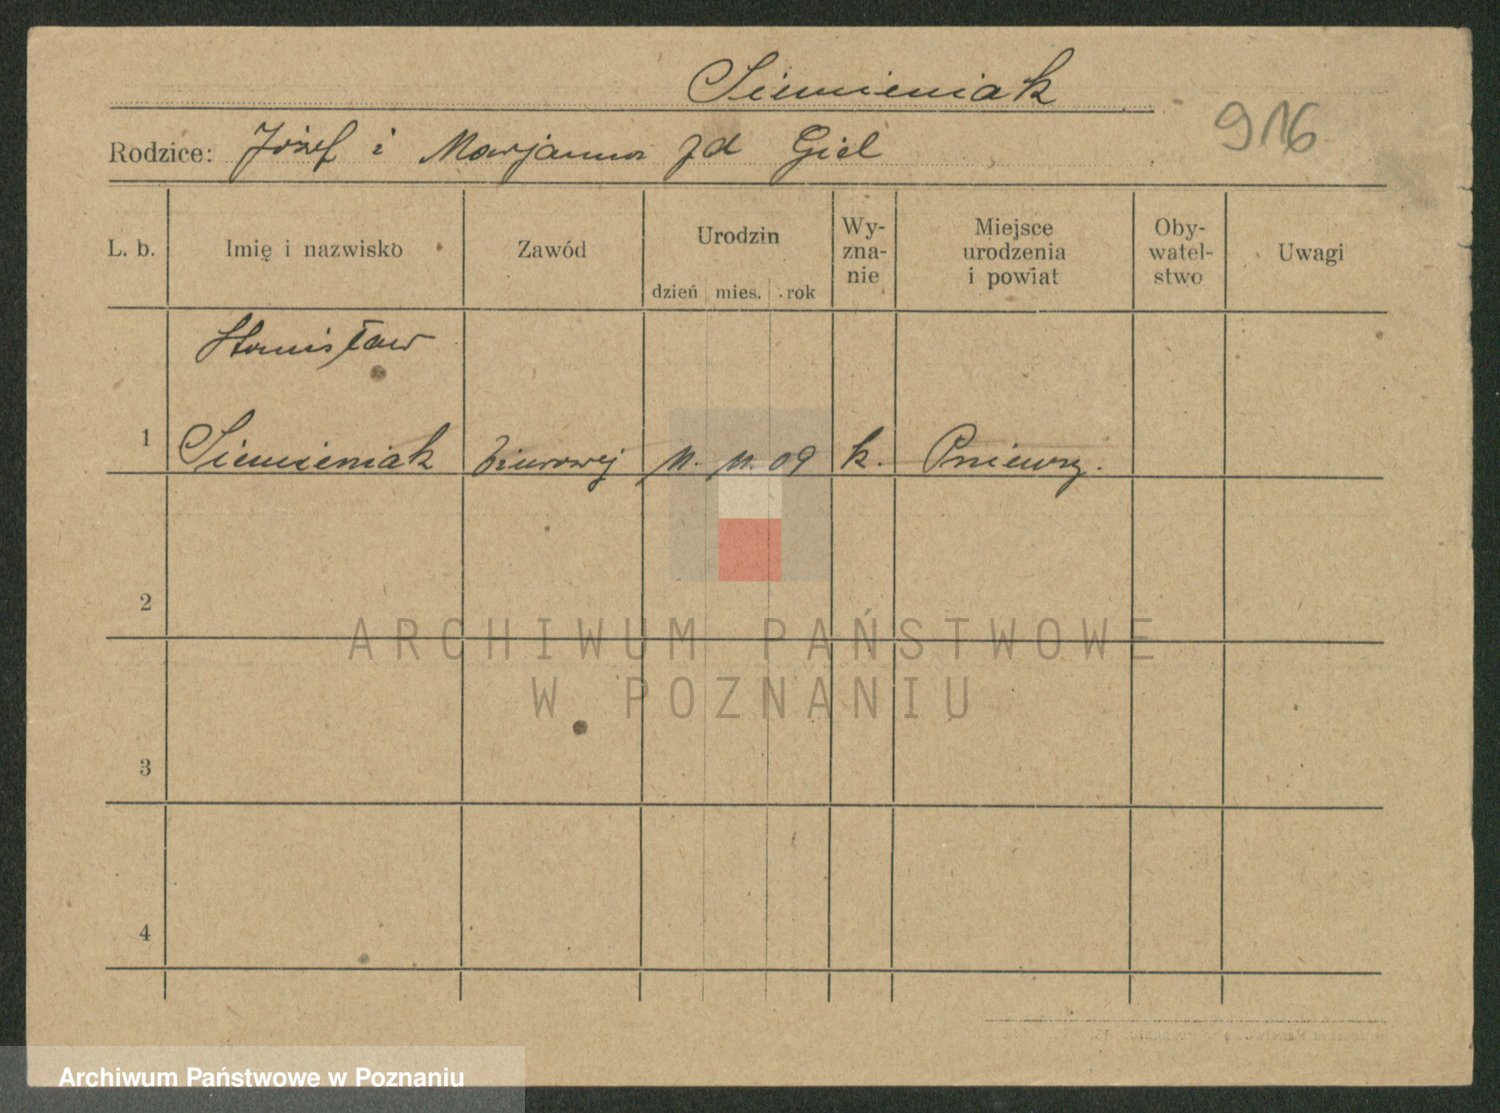 Siemieniak
916
Rodzice: Józef i Marjanna zd Giel
L. b.
Imię i nazwisko
Zawód
Urodzin
dzień mies. rok
Wy-
zna-
nie
Miejsce
urodzenia
i powiat
Oby-
watel-
stwo
Uwagi
Stanisław
1 Siemieniak biurowej 11. 11. 09 k. Pniewy.
2
3
4
ARCHIWUM PAŃSTWOWE
W POZNANIU
Archiwum Państwowe w Poznaniu